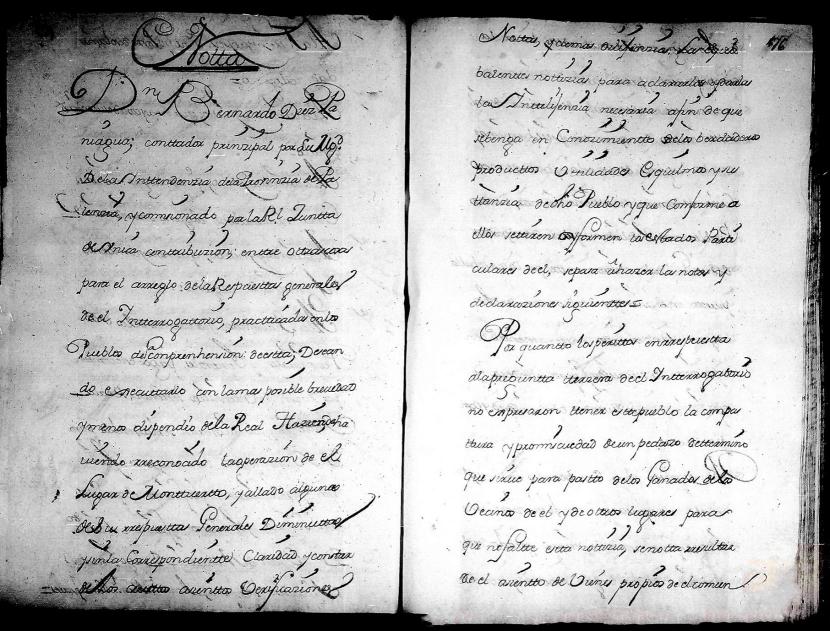 Notta
Dn. Bernardo Diez Pa
niagua; conttador prinzipal por Su Mgd.
De la Inttendenzia dela Provinzia de Pa
lenzia, y comisionado por la Rl. Juntta
de Unica contribuzion; entre ottras cosas
para el arreglo de las Respuesttas generales
de el Intterrogattorio, practticadas en los
Pueblos de comprenhension de estta; Desean
do executtarlo con la mas posible brevedad
y menos dispendio de la Real Hazienda, ha
viendo rreconozido la operazion de el
Lugar de Monttuertto, y allado algunas
de sus rrespuesttas Generales Diminuttas
y sin la correspondientte Claridad y constar
de los asienttos Verificaziones
576
Nottas, y demas dilixenzias, las equi
balentes nottizias para aclararlas y darlas
la Inttelixenzia nezesaria afin de que
se benga en Conozimientto de los berdaderos
productos Utilidades Esquilmos y sus
ttanzia de dho Pueblo y que Conforme a
ellos se ttiren o formen los esttados Partti
culares de el, se pasa á hazer las nottas y
declaraziones siguienttes =
Por quantto los perittos en rrespuestta
ala preguntta tterzera de el Intterrogattorio
no expresaron ttener estte pueblo la compas
ttura y promiscuedad de un pedazo de ttermino
que sirve para pastto de los Ganados de los
Vecinos de el y de ottros lugares para
que no faltte estta nottizia, se notta rresulttar
de el asientto de Vienes propios de el comun